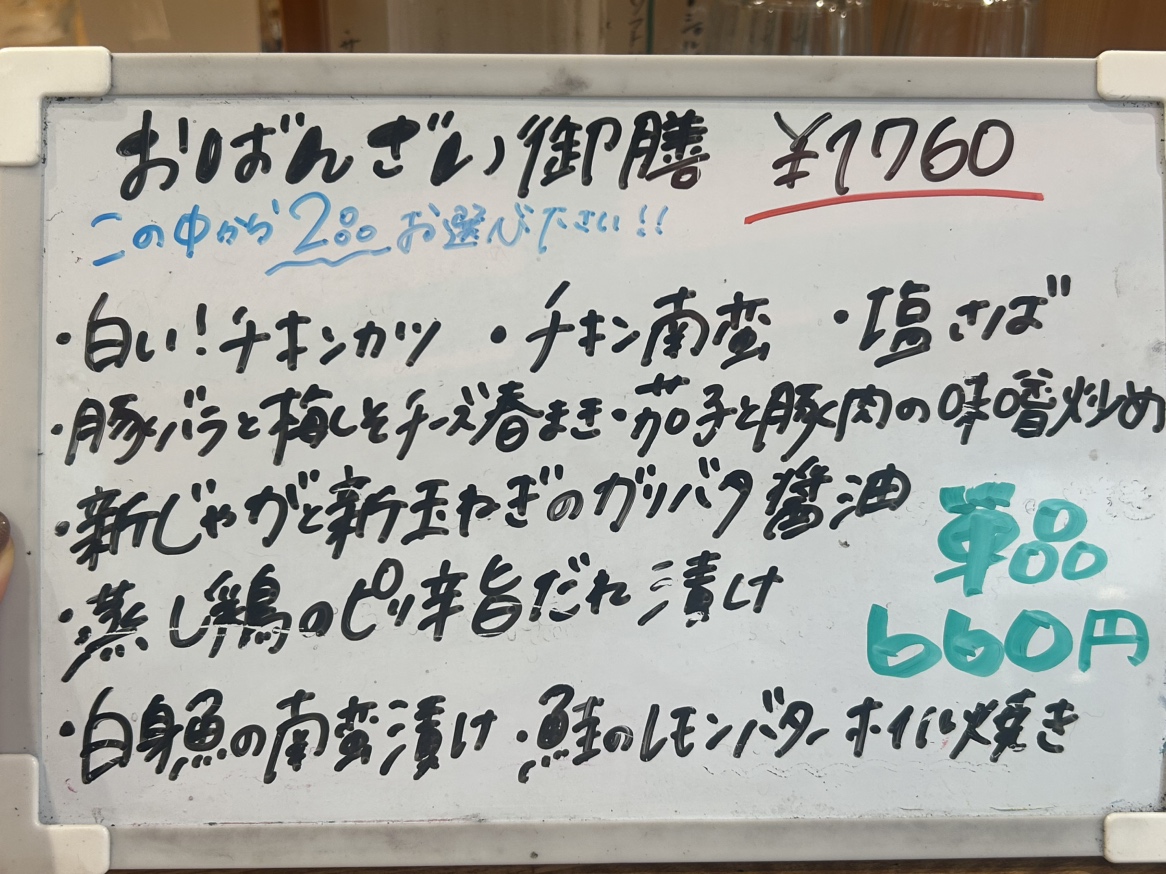 おばんざい御膳 ¥1760
この中から2品お選びください!!
・白い!チキンカツ ・チキン南蛮 ・塩さば
・豚バラと梅しそチーズ春まき・茄子と豚肉の味噌炒め
・新じゃがと新玉ねぎのガリバタ醤油
・蒸し鶏のピリ辛旨だれ漬け
単品
660円
・白身魚の南蛮漬け ・鮭のレモンバターホイル焼き